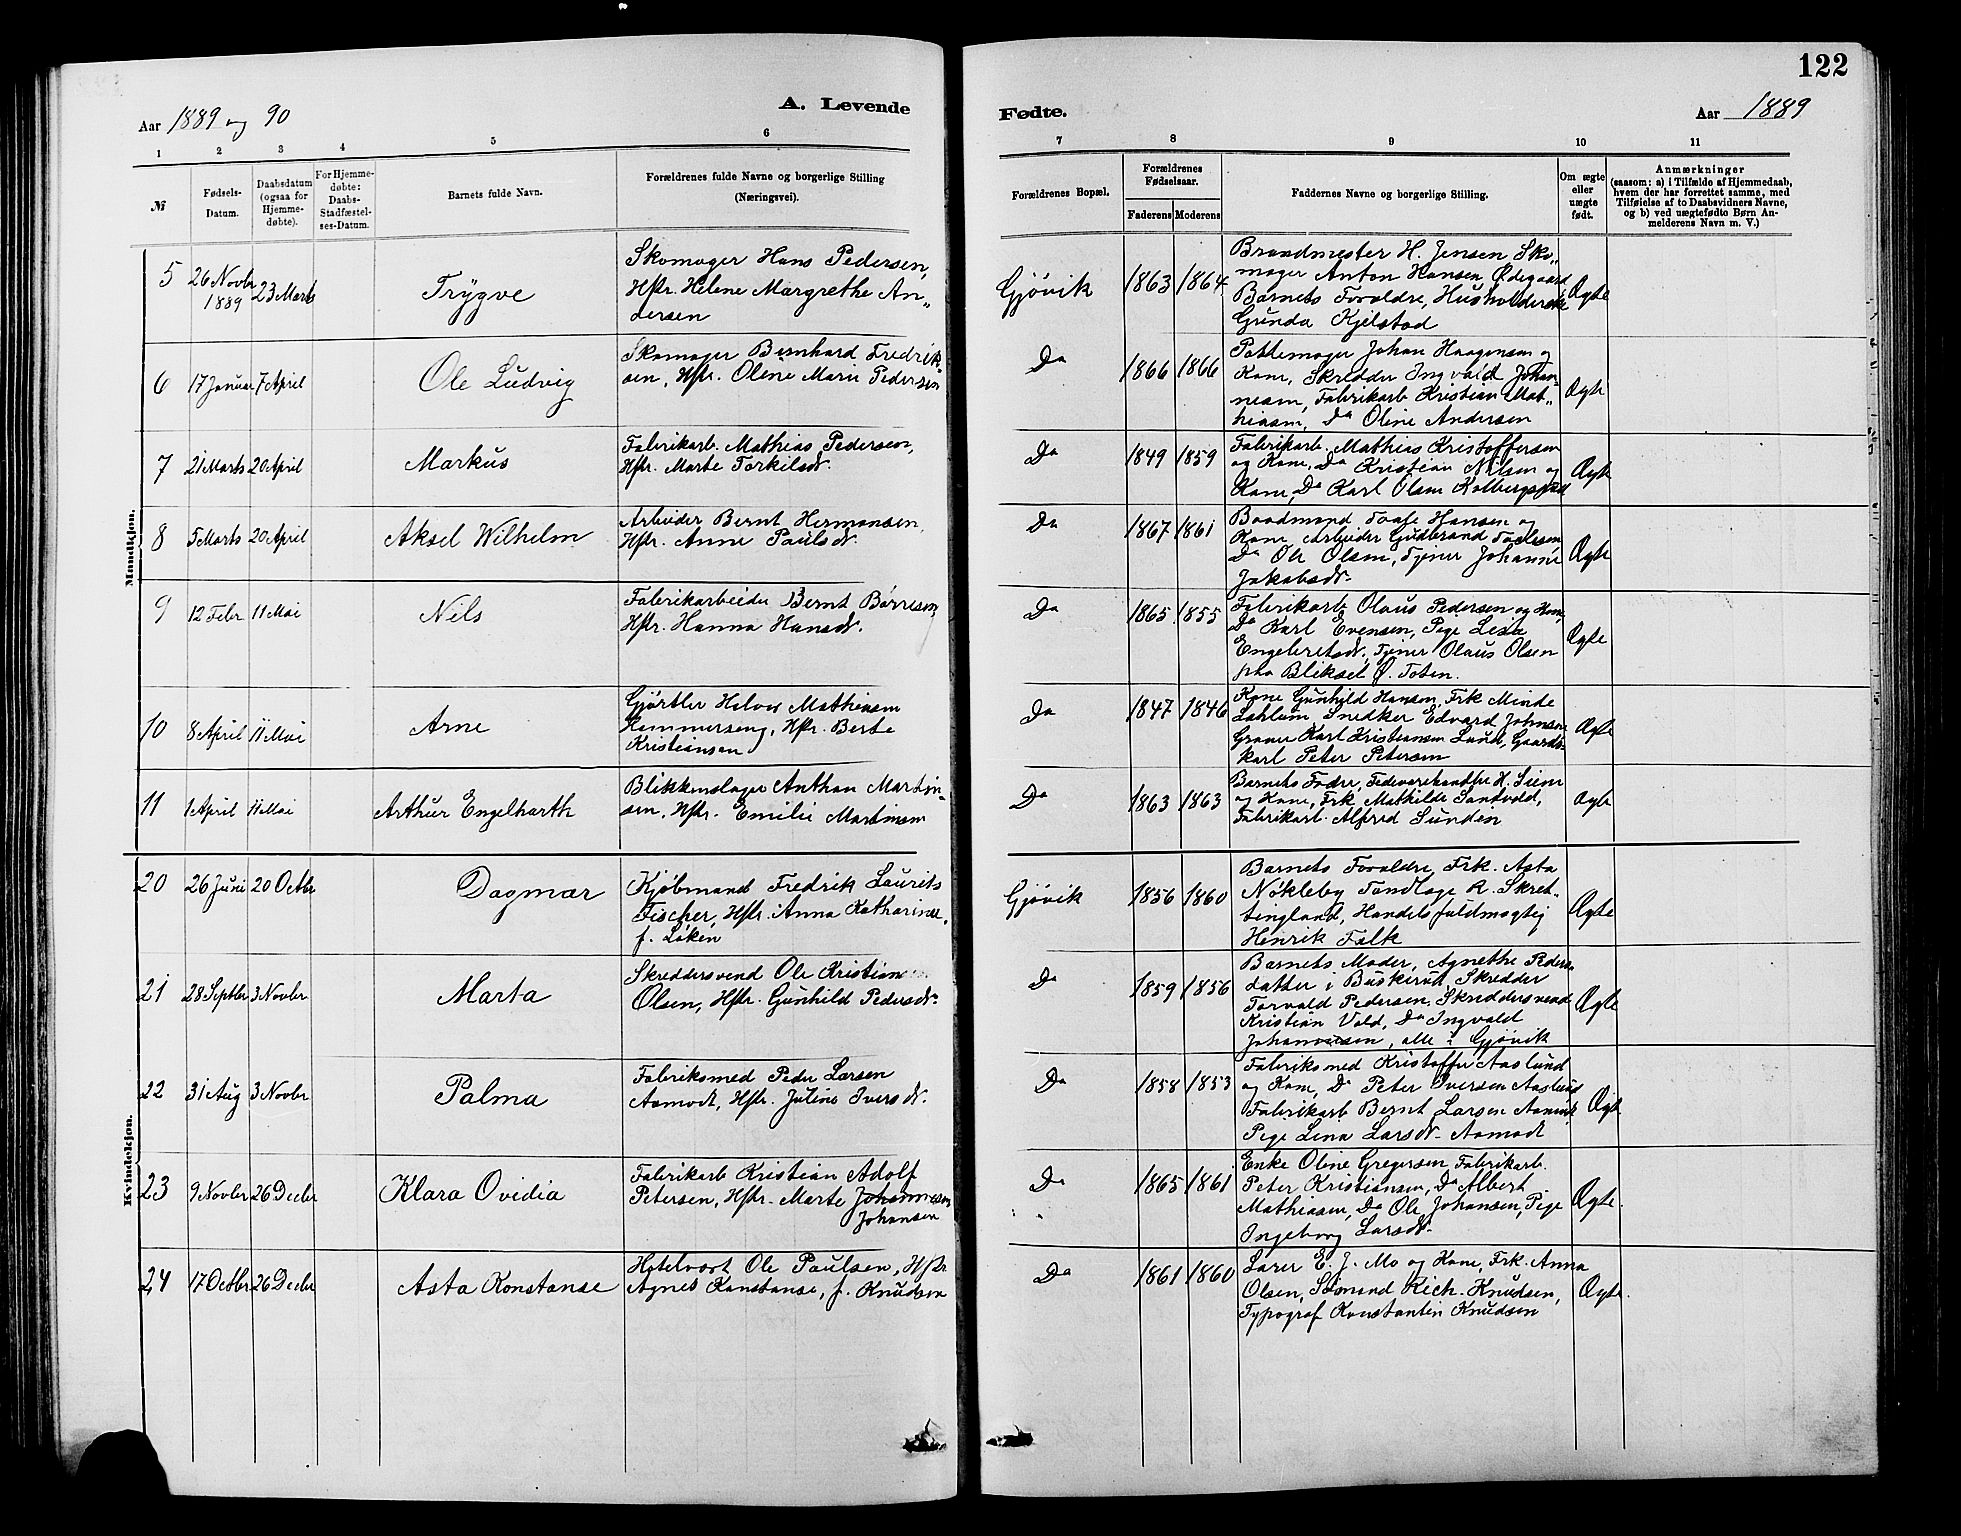 122
Aar 1889 og 90
A. Levende
Fødte.
Aar 1889
1 2 3 4 5 6
7 8 9 10 11
№
Fødsels-
Datum.
Daabsdatum
(ogsaa for
Hjemme-
døbte).
For Hjemme-
døbte:
Daabs-
Stadfæstel-
ses-Datum.
Barnets fulde Navn.
Forældrenes fulde Navne og borgerlige Stilling
(Næringsvei).
Forældrenes Bopæl.
Forældrenes
Fødselsaar.
Faderens Moderens
Faddernes Navne og borgerlige Stilling.
Om ægte
eller
uægte
født.
Anmærkninger
(saasom: a) i Tilfælde af Hjemmedaab,
hvem der har forrettet samme, med
Tilføielse af to Daabsvidners Navne,
og b) ved uægtefødte Børn An-
melderens Navn m. V.)
Mandkjøn.
5
26 Novbr
1889
23 Marts
Trygve
Skomager Hans Pedersen,
Hstr. Helene Margrethe An-
dersen
Gjøvik
1863 1864
Brandmester H. Jensen, Sko-
mager Anton Hansen Ødegaard
Barnets Forældre, Husholderske
Gunda Kjelstad
Ægte
6
17 Januar
7 April
Ole Ludvig
Skomager Bernhard Fredrik-
sen, Hstr. Oline Marie Pedersen
Do
1866 1866
Pottemager Johan Haagensen og
Kone, Skredder Ingvald Johan-
nesen, Fabrikarb Kristian Mat-
hiasen, Do Oline Andersen
Ægte
7
21 Marts
20 April
Markus
Fabrikarb. Mathias Pedersen,
Hstr. Marte Torkilsdr.
Do
1849 1859
Fabrikarb. Mathias Kristoffersen
og Kone, Do Kristian Nilsen og
Kone, Do Karl Olsen
Ægte
8
5 Marts
20 April
Aksel Wilhelm
Arbeider Bernt Hermansen,
Hstr. Anne Paulsdr.
Do
1867 1861
Baadmand Hansen og
Kone, Arbeider Gudbrand
Do Ole Olsen, Tjener Johanne
Jakobsdr.
Ægte
9
12 Febr
11 Mai
Nils
Fabrikarbeider Bernt Børresen
Hstr. Hanna Hansdr.
Do
1865 1855
Fabrikarb Olaus Pedersen og Kone,
Do Karl Evensen, Pige Lina
Engebretsdr, Tjener Olaus Olsen
paa Bliksel Ø. Toten.
Ægte
10
8 April
11 Mai
Arne
Gjørtler Halvor Mathiasen
Hammerseng, Hstr. Berte
Kristiansen
Do
1847 1846
Kone Gunhild Hansen, Frk Minde
Lahlum Snedker Edvard Johnsen
Graver Karl Kristiansen Lund, Gaards-
karl Peter Petersen
Ægte
11
1 April
11 Mai
Arthur Engelharth
Blikkenslager Anthon Martin-
sen, Hstr. Emilie Martinsen
Do
1863 1863
Barnets Fader, Fedevarehandler H. Siem
og Kone, Frk Mathilde Santvold,
Fabrikarb. Alfred Sunden
Ægte
Kvindekjøn.
20
26 Juni
20 Octbr
Dagmar
Kjøbmand Fredrik Laurits
Fischer, Hstr. Anna Katharina
f. Løken
Gjøvik
1856 1860
Barnets Forældre, Frk. Asta
Nøkleby Tandlæge R. Skret-
tengland, Handelsfuldmægtig
Henrik Falk
Ægte
21
28 Septbr
3 Novbr
Marta
Skreddersvend Ole Kristian
Olsen, Hstr. Gunhild Pedersdr.
Do
1859 1856
Barnets Moder, Agnethe Peders-
datter i Buskerud, Skredder
Torvald Pedersen, Skreddersvend
Kristian Vold, Do Ingvald
Johannesen, alle i Gjøvik
Ægte
22
31 Aug
3 Novbr
Palma
Fabriksmed Peder Larsen
Aamodt, Hstr. Juline Iversdr.
Do
1858 1853
Fabriksmed Kristoffer Aaslund
og Kone, Do Peter Iversen Aaslund
Fabrikarb Bernt Larsen Aamodt
Pige Lina Larsdr. Aamodt
Ægte
23
9 Novbr
26 Decbr
Klara Ovidia
Fabrikarb Kristian Adolf
Petersen, Hstr. Marte Johannesen
Johansen
Do
1865 1861
Enke Oline Gregersen, Fabrikarb.
Peter Kristiansen, Do Albert
Mathiasen, Do Ole Johansen, Pige
Ingeborg Larsdr.
Ægte.
24
17 Octbr
26 Decbr
Asta Konstanse
Hotelvært Ole Paulsen, Hstr
Agnes Konstanse, f. Knudsen
Do
1861 1860
Lærer E. J. Mo og Kone, Frk. Anna
Olsen, Sømand Rich. Knudsen,
Typograf Konstantin Knudsen
Ægte.